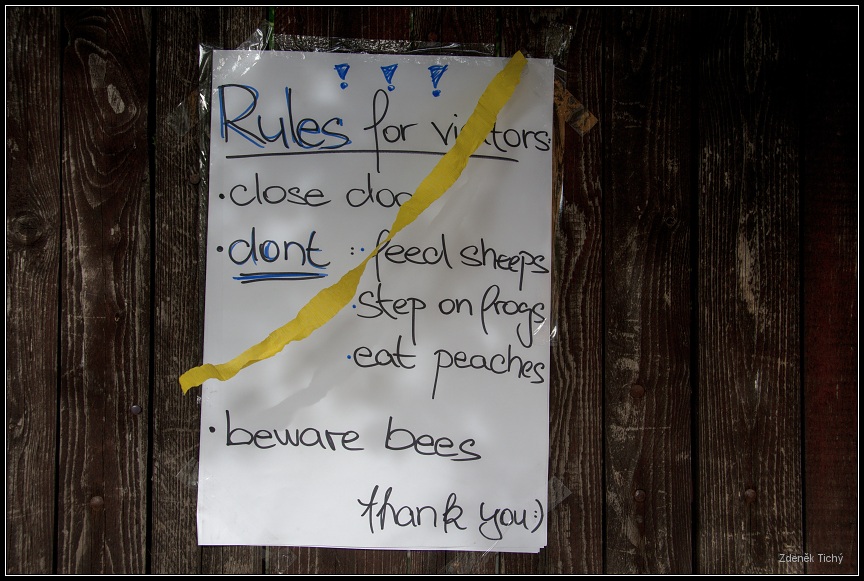 ! ! !
Rules for visitors:
• close doo
• dont : • feed sheeps
• step on frogs
• eat peaches
• beware bees
thank you:)
Zdeněk Tichý